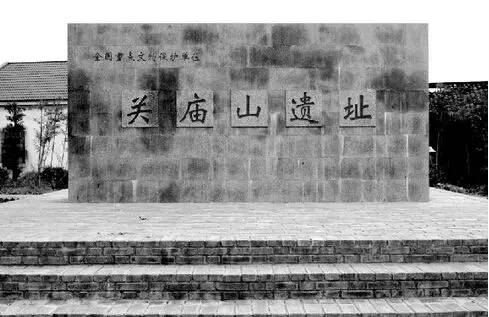 全国重点文物保护单位
关庙山遗址